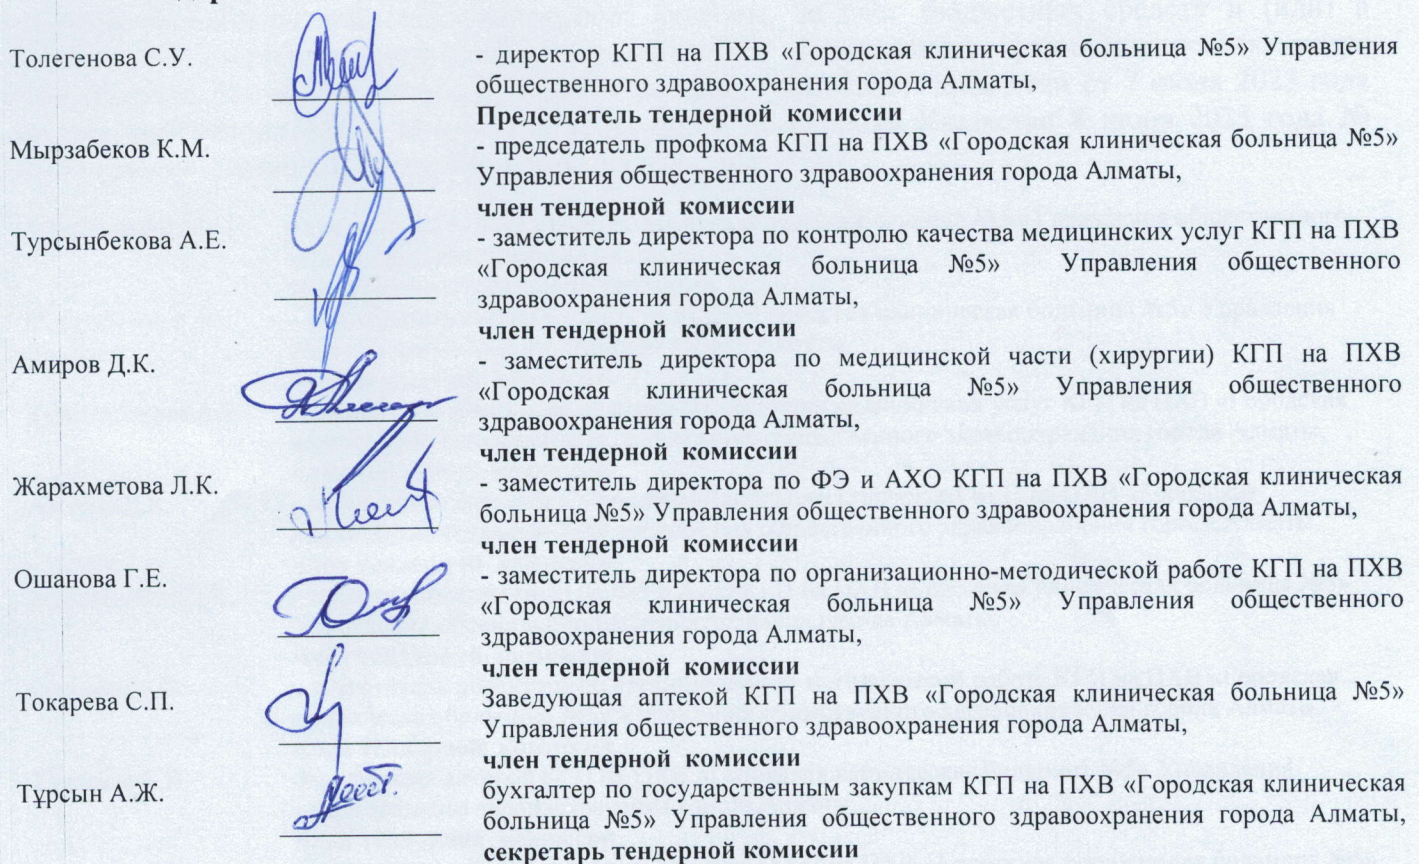 Толегенова С.У.
- директор КГП на ПХВ «Городская клиническая больница №5» Управления
общественного здравоохранения города Алматы,
Председатель тендерной комиссии
Мырзабеков К.М.
- председатель профкома КГП на ПХВ «Городская клиническая больница №5»
Управления общественного здравоохранения города Алматы,
член тендерной комиссии
Турсынбекова А.Е.
- заместитель директора по контролю качества медицинских услуг КГП на ПХВ
«Городская клиническая больница №5» Управления общественного
здравоохранения города Алматы,
член тендерной комиссии
Амиров Д.К.
- заместитель директора по медицинской части (хирургии) КГП на ПХВ
«Городская клиническая больница №5» Управления общественного
здравоохранения города Алматы,
член тендерной комиссии
Жарахметова Л.К.
- заместитель директора по ФЭ и АХО КГП на ПХВ «Городская клиническая
больница №5» Управления общественного здравоохранения города Алматы,
член тендерной комиссии
Ошанова Г.Е.
- заместитель директора по организационно-методической работе КГП на ПХВ
«Городская клиническая больница №5» Управления общественного
здравоохранения города Алматы,
член тендерной комиссии
Токарева С.П.
Заведующая аптекой КГП на ПХВ «Городская клиническая больница №5»
Управления общественного здравоохранения города Алматы,
член тендерной комиссии
Тұрсын А.Ж.
бухгалтер по государственным закупкам КГП на ПХВ «Городская клиническая
больница №5» Управления общественного здравоохранения города Алматы,
секретарь тендерной комиссии